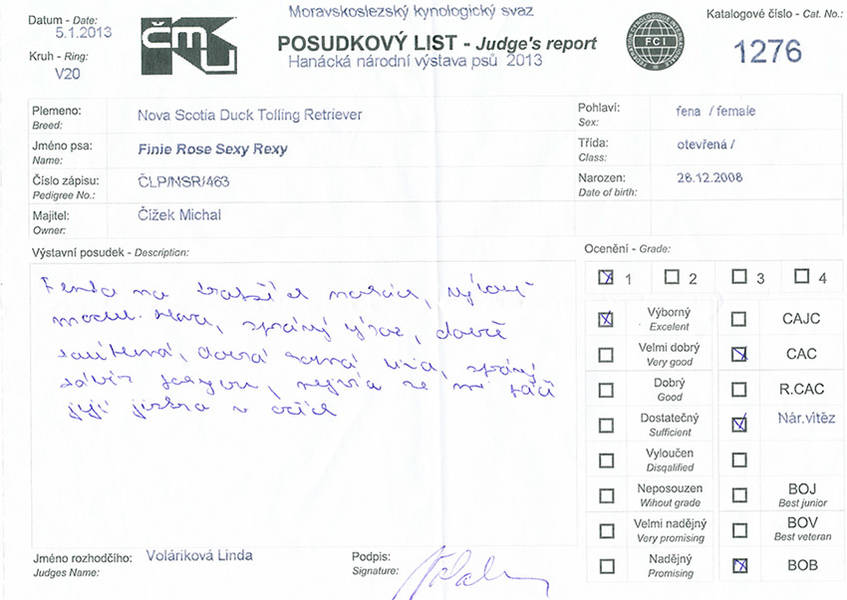 Moravskoslezský kynologický svaz
Datum - Date:
5.1.2013
Kruh - Ring:
V20
ČMKU
POSUDKOVÝ LIST - Judge's report
Hanácká národní výstava psů 2013
FCI
Katalogové číslo - Cat. No.:
1276
Plemeno:
Breed:
Nova Scotia Duck Tolling Retriever
Pohlaví:
Sex:
fena / female
Jméno psa:
Name:
Finie Rose Sexy Rexy
Třída:
Class:
otevřená /
Číslo zápisu:
Pedigree No.:
ČLP/NSR/463
Narozen:
Date of birth:
28.12.2008
Majitel:
Owner:
Čížek Michal
Výstavní posudek - Description:
Fenka na nohách,
hlava, správný výraz, dobře
dobrá horní linie, správný
nejvíc se mi líbí
její jiskra v očích
Ocenění - Grade:
1 2 3 4
Výborný
Excelent
CAJC
Velmi dobrý
Very good
CAC
Dobrý
Good
R.CAC
Dostatečný
Sufficient
Nár.vítěz
Vyloučen
Disqalified
Neposouzen
Wihout grade
BOJ
Best junior
Velmi nadějný
Very promising
BOV
Best veteran
Nadějný
Promising
BOB
Jméno rozhodčího:
Judges Name:
Voláriková Linda
Podpis:
Signature: